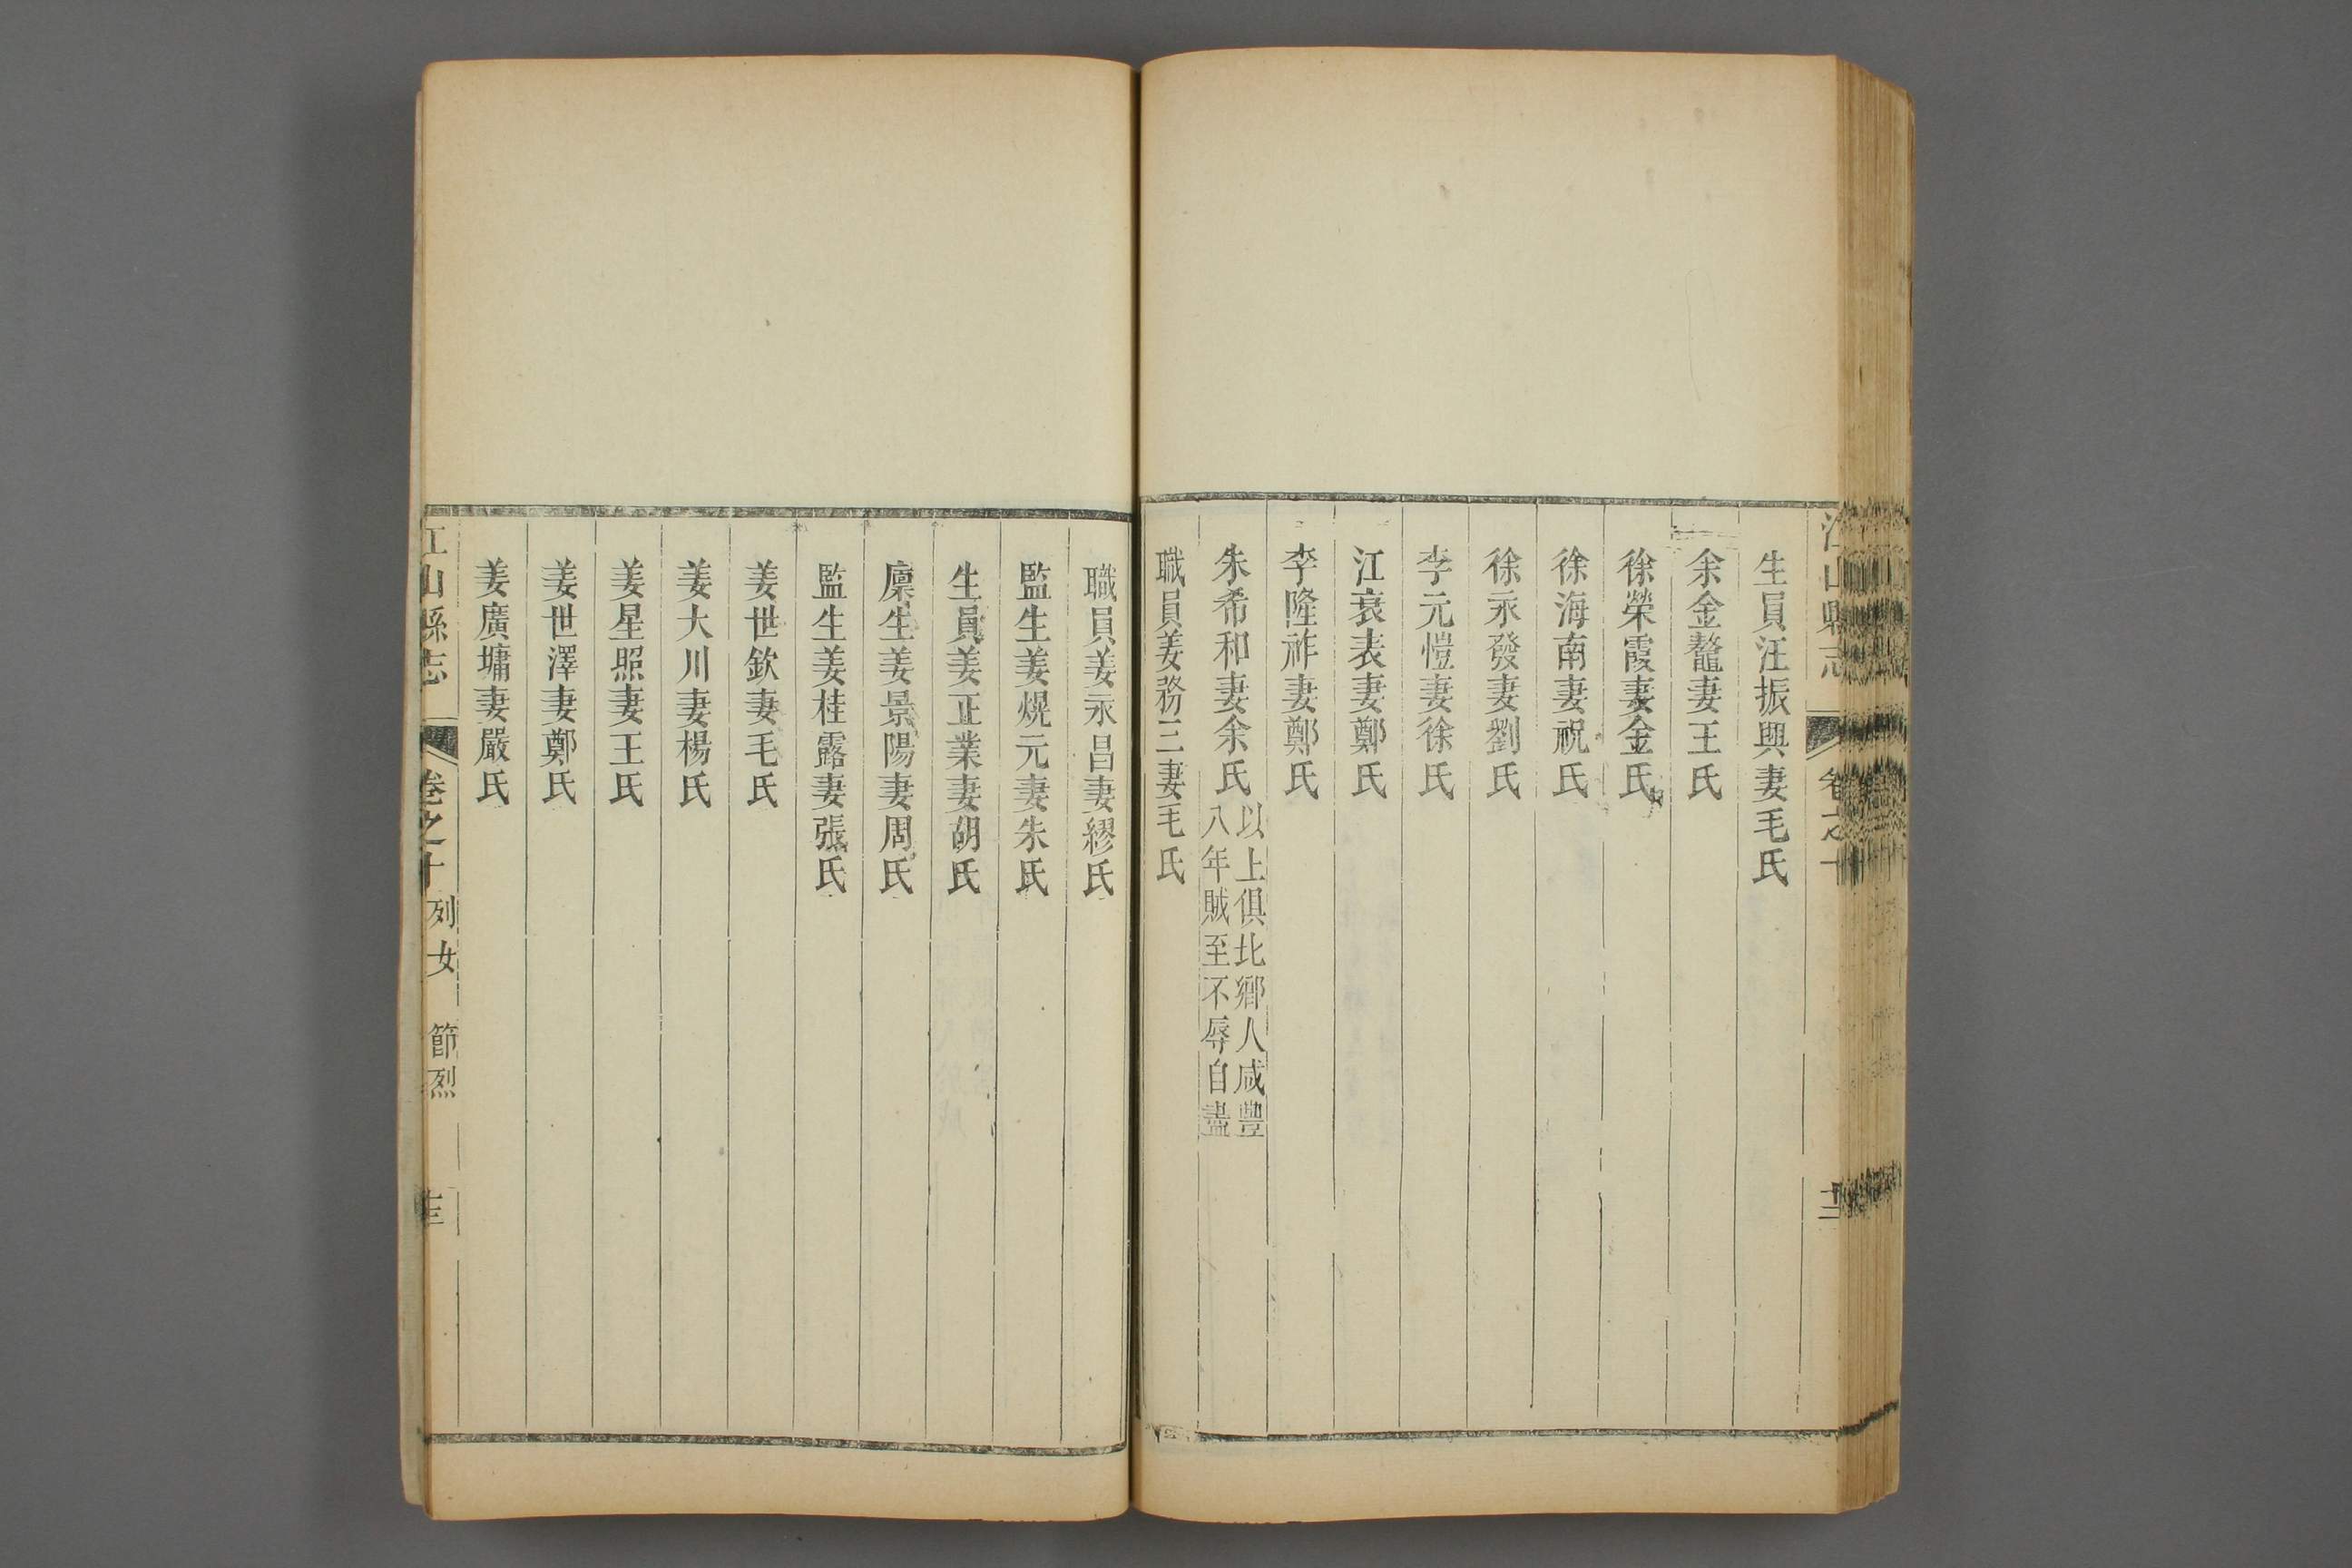 生員汪振興妻毛氏
余金鼇妻王氏
徐榮霞妻金氏
徐海南妻祝氏
徐永發妻劉氏
李元愷妻徐氏
江袞表妻鄭氏
李隆祚妻鄭氏
朱希和妻余氏以上俱北鄉人咸豐
八年賊至不辱自盡
職員姜務三妻毛氏
職員姜永昌妻繆氏
監生姜焜元妻朱氏
生員姜正業妻胡氏
廩生姜景陽妻周氏
監生姜桂露妻張氏
姜世欽妻毛氏
姜大川妻楊氏
姜星照妻王氏
姜世澤妻鄭氏
姜廣墉妻嚴氏
江山縣志 卷之十 列女 節烈